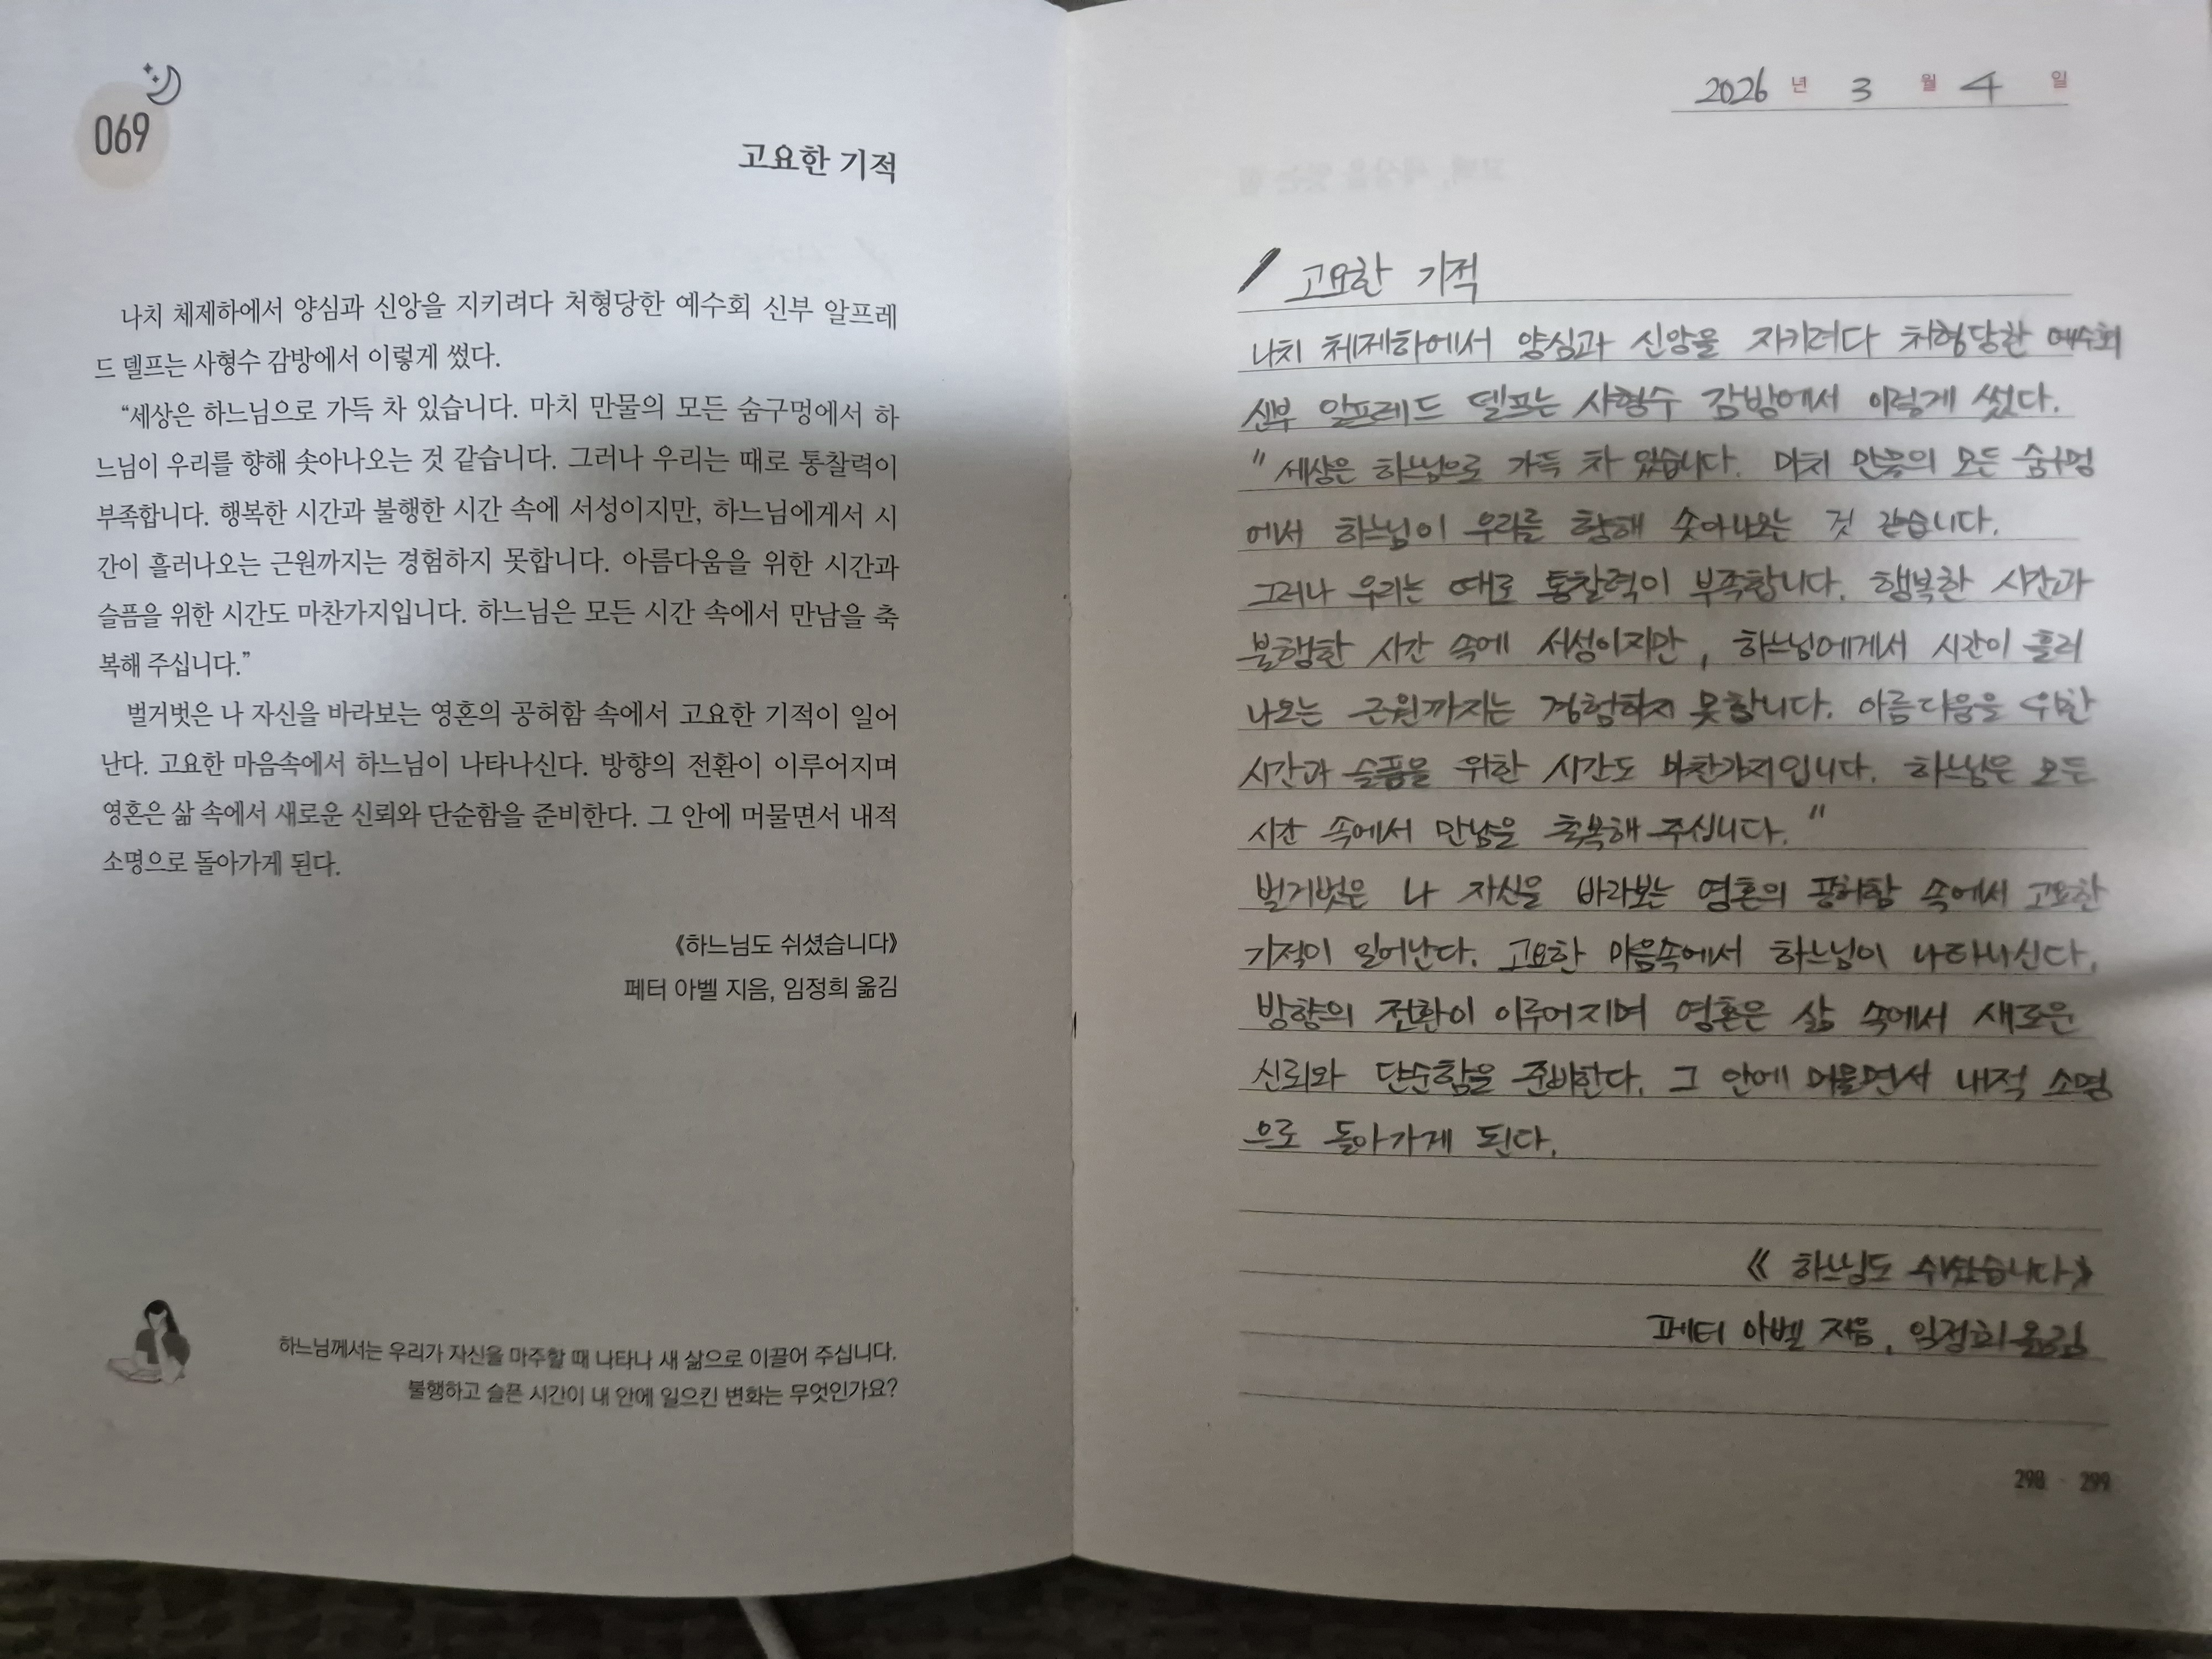 069
고요한 기적
나치 체제하에서 양심과 신앙을 지키려다 처형당한 예수회 신부 알프레
드 델프는 사형수 감방에서 이렇게 썼다.
“세상은 하느님으로 가득 차 있습니다. 마치 만물의 모든 숨구멍에서 하
느님이 우리를 향해 솟아나오는 것 같습니다. 그러나 우리는 때로 통찰력이
부족합니다. 행복한 시간과 불행한 시간 속에 서성이지만, 하느님에게서 시
간이 흘러나오는 근원까지는 경험하지 못합니다. 아름다움을 위한 시간과
슬픔을 위한 시간도 마찬가지입니다. 하느님은 모든 시간 속에서 만남을 축
복해 주십니다.”
벌거벗은 나 자신을 바라보는 영혼의 공허함 속에서 고요한 기적이 일어
난다. 고요한 마음속에서 하느님이 나타나신다. 방향의 전환이 이루어지며
영혼은 삶 속에서 새로운 신뢰와 단순함을 준비한다. 그 안에 머물면서 내적
소명으로 돌아가게 된다.
《하느님도 쉬셨습니다》
페터 아벨 지음, 임정희 옮김
하느님께서는 우리가 자신을 마주할 때 나타나 새 삶으로 이끌어 주십니다.
불행하고 슬픈 시간이 내 안에 일으킨 변화는 무엇인가요?
2026 년 3 월 4 일
고요한 기적
나치 체제하에서 양심과 신앙을 지키려다 처형당한 예수회
신부 알프레드 델프는 사형수 감방에서 이렇게 썼다.
" 세상은 하느님으로 가득 차 있습니다. 마치 만물의 모든 숨구멍
에서 하느님이 우리를 향해 솟아나오는 것 같습니다.
그러나 우리는 때로 통찰력이 부족합니다. 행복한 시간과
불행한 시간 속에 서성이지만, 하느님에게서 시간이 흘러
나오는 근원까지는 경험하지 못합니다. 아름다움을 위한
시간과 슬픔을 위한 시간도 마찬가지입니다. 하느님은 모든
시간 속에서 만남을 축복해 주십니다. "
벌거벗은 나 자신을 바라보는 영혼의 공허함 속에서 고요한
기적이 일어난다. 고요한 마음속에서 하느님이 나타나신다.
방향의 전환이 이루어지며 영혼은 삶 속에서 새로운
신뢰와 단순함을 준비한다. 그 안에 머물면서 내적 소명
으로 돌아가게 된다.
《 하느님도 쉬셨습니다》
페터 아벨 지음, 임정희 옮김
298 · 299